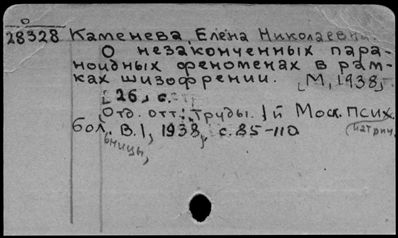 28328 Каменева, Елена Николаевна.
О незаконченных пара-
ноидных феноменах в рам-
ках шизофрении. [М, 1938,
26 с.
Отд. отт.: Труды. 1й Моск. псих.
бол. В. 1, 1938, с. 85-110